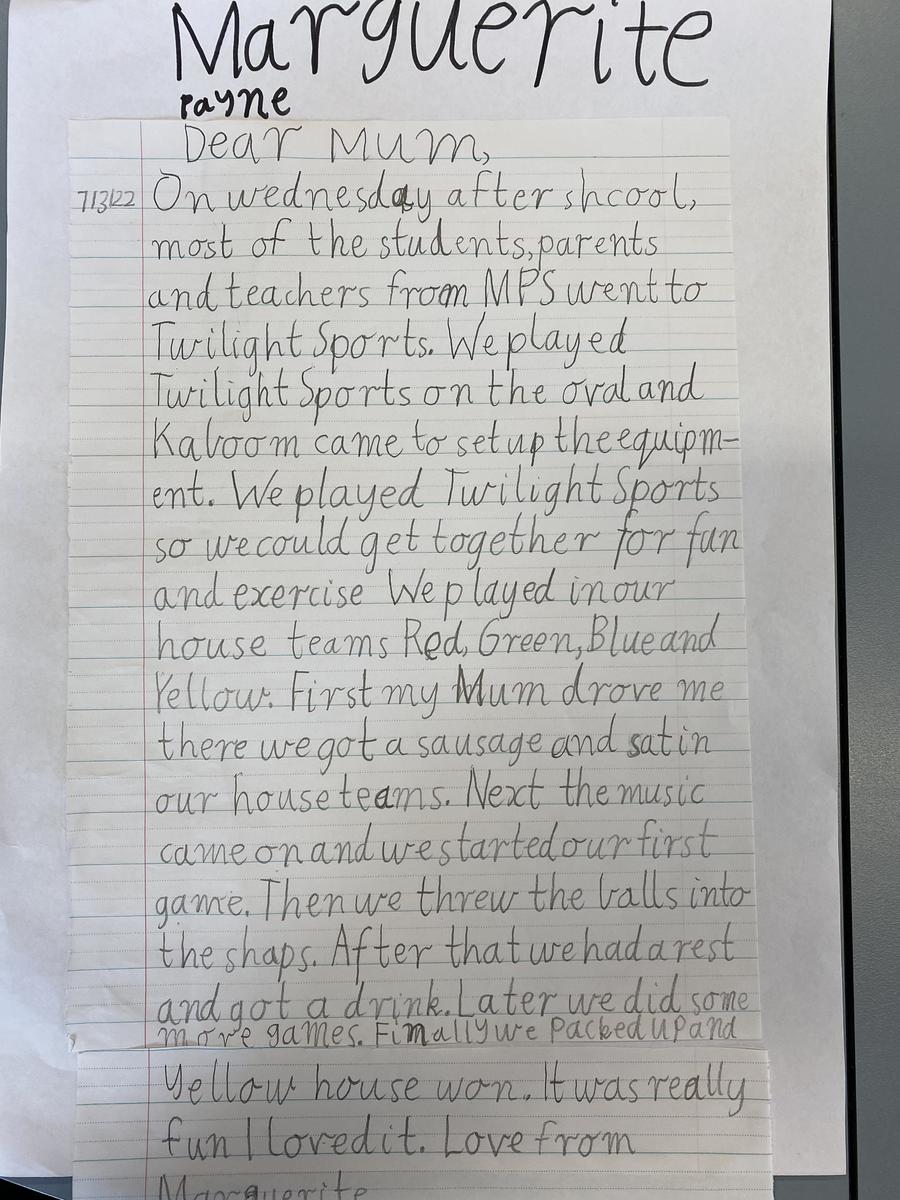 Marguerite
Payne
Dear Mum,
7/3/22 On wednesday after shcool,
most of the students, parents
and teachers from MPS went to
Twilight Sports. We played
Twilight Sports on the oval and
Kaboom came to set up the equipm-
ent. We played Twilight Sports
so we could get together for fun
and exercise We played in our
house teams Red, Green, Blue and
Yellow. First my Mum drove me
there we got a sausage and sat in
our house teams. Next the music
came on and we started our first
game. Then we threw the balls into
the shaps. After that we had a rest
and got a drink. Later we did some
more games. Finally we Packed up and
Yellow house won. It was really
fun I loved it. Love from
Marguerite